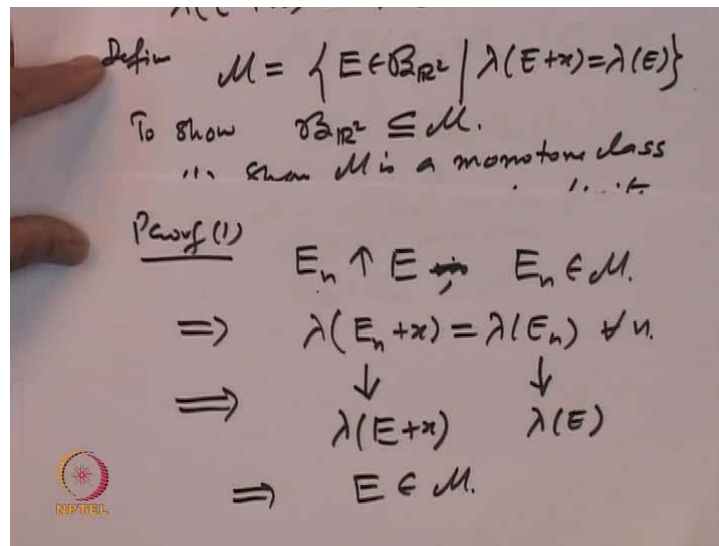 Define M = { E ∈ B_ℝ² | λ(E+x)=λ(E)}
To show B_ℝ² ⊆ M.
(1) show M is a monotone class
Proof (1)
E_n ↑ E, E_n ∈ M.
⇒ λ(E_n+x) = λ(E_n) ∀ n.
↓ ↓
⇒ λ(E+x) λ(E)
⇒ E ∈ M.
NPTEL